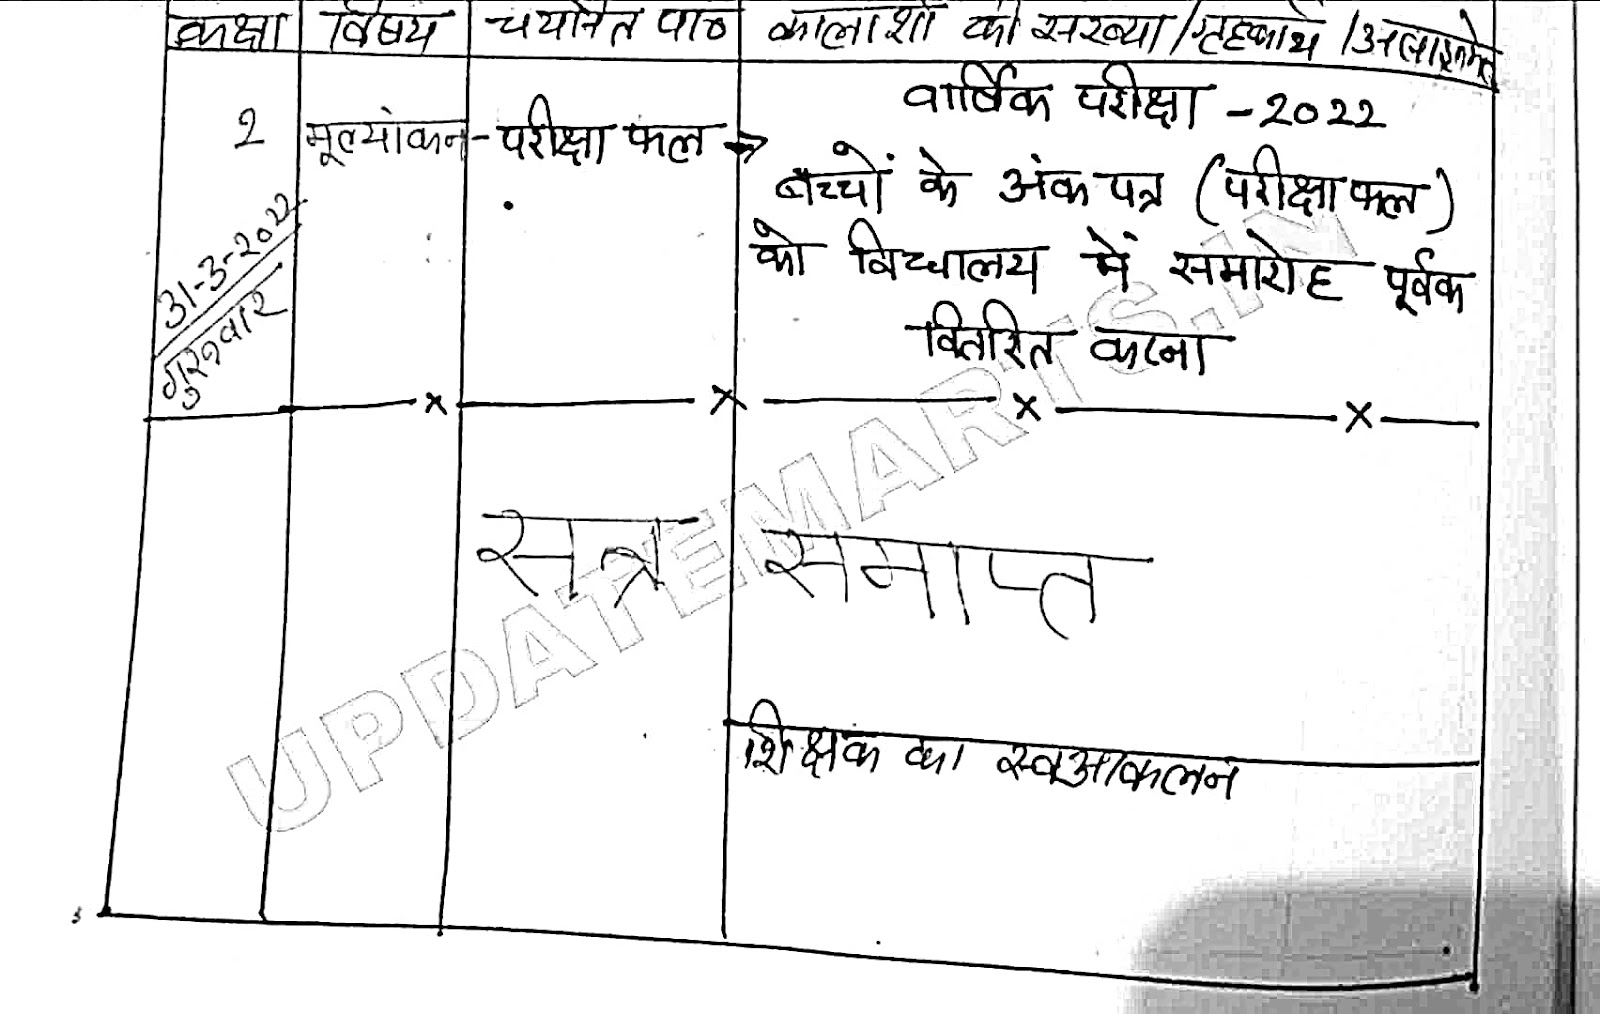 कक्षा विषय चयनित पाठ कालांशों की संख्या/गृहकार्य/असाइनमेंट
वार्षिक परीक्षा - २०२२
२ मूल्यांकन - परीक्षा फल →
बच्चों के अंक पत्र (परीक्षा फल)
को विद्यालय में समारोह पूर्वक
वितरित करना
31-3-२०२२
गुरुवार
सत्र समाप्त
शिक्षक का स्वआकलन
UPDATEMARTS.IN